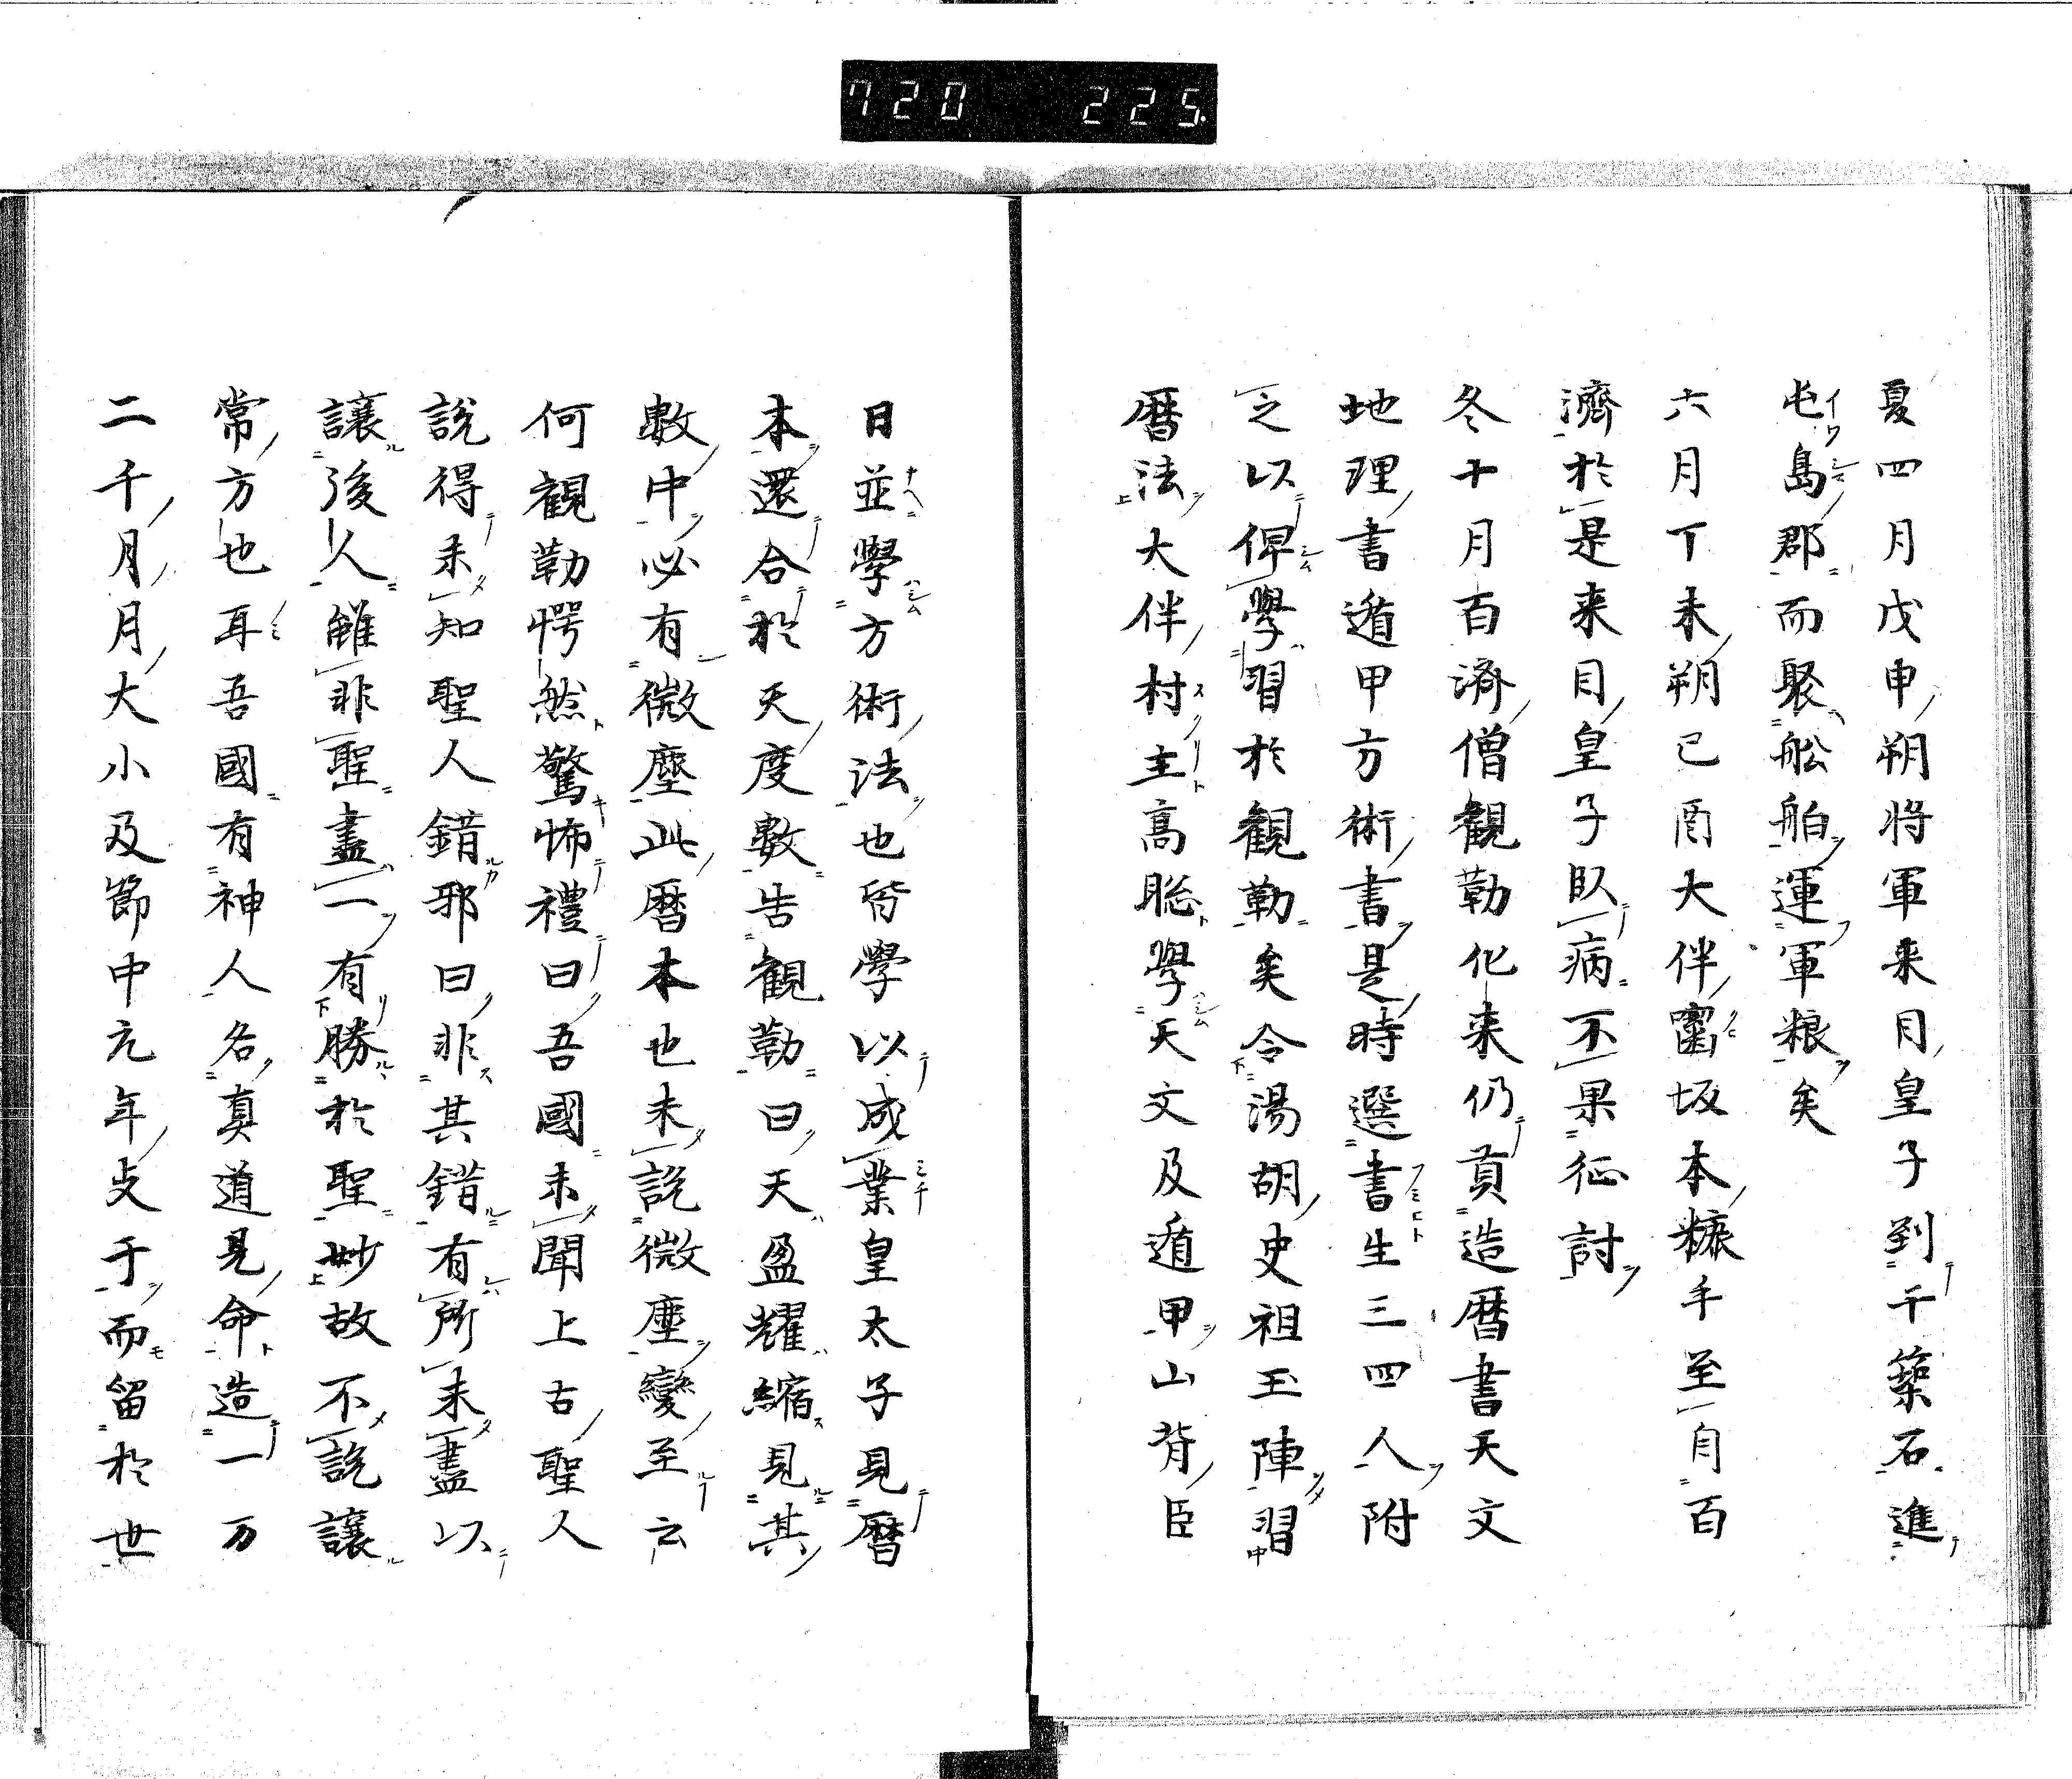 720 225
夏四月戊申朔将軍来目皇子到千築石進
屯島郡而聚舩舶運軍粮矣
六月丁未朔己酉大伴囓坂本糠手至自百
濟於是来目皇子臥病不果征討
冬十月百濟僧觀勒化来仍貢造暦書天文
地理書遁甲方術書是時選書生三四人附
之以俾學習於觀勒矣令湯胡史祖玉陣習
暦法大伴村主高聡學天文及遁甲山背臣
日並學方術法也皆學以成業皇太子見暦
本還合於天度數告觀勒曰天盈耀縮見其
數中必有微塵此暦本也未說微塵變至云
何觀勒愕然驚怖禮曰吾國未聞上古聖人
說得未知聖人錯邪曰非其錯有所未盡以
讓後人雖非聖盡一有勝於聖妙故不說讓
常方也耳吾國有神人名真道見命造一万
二千月月大小及節中元年支于而留於世